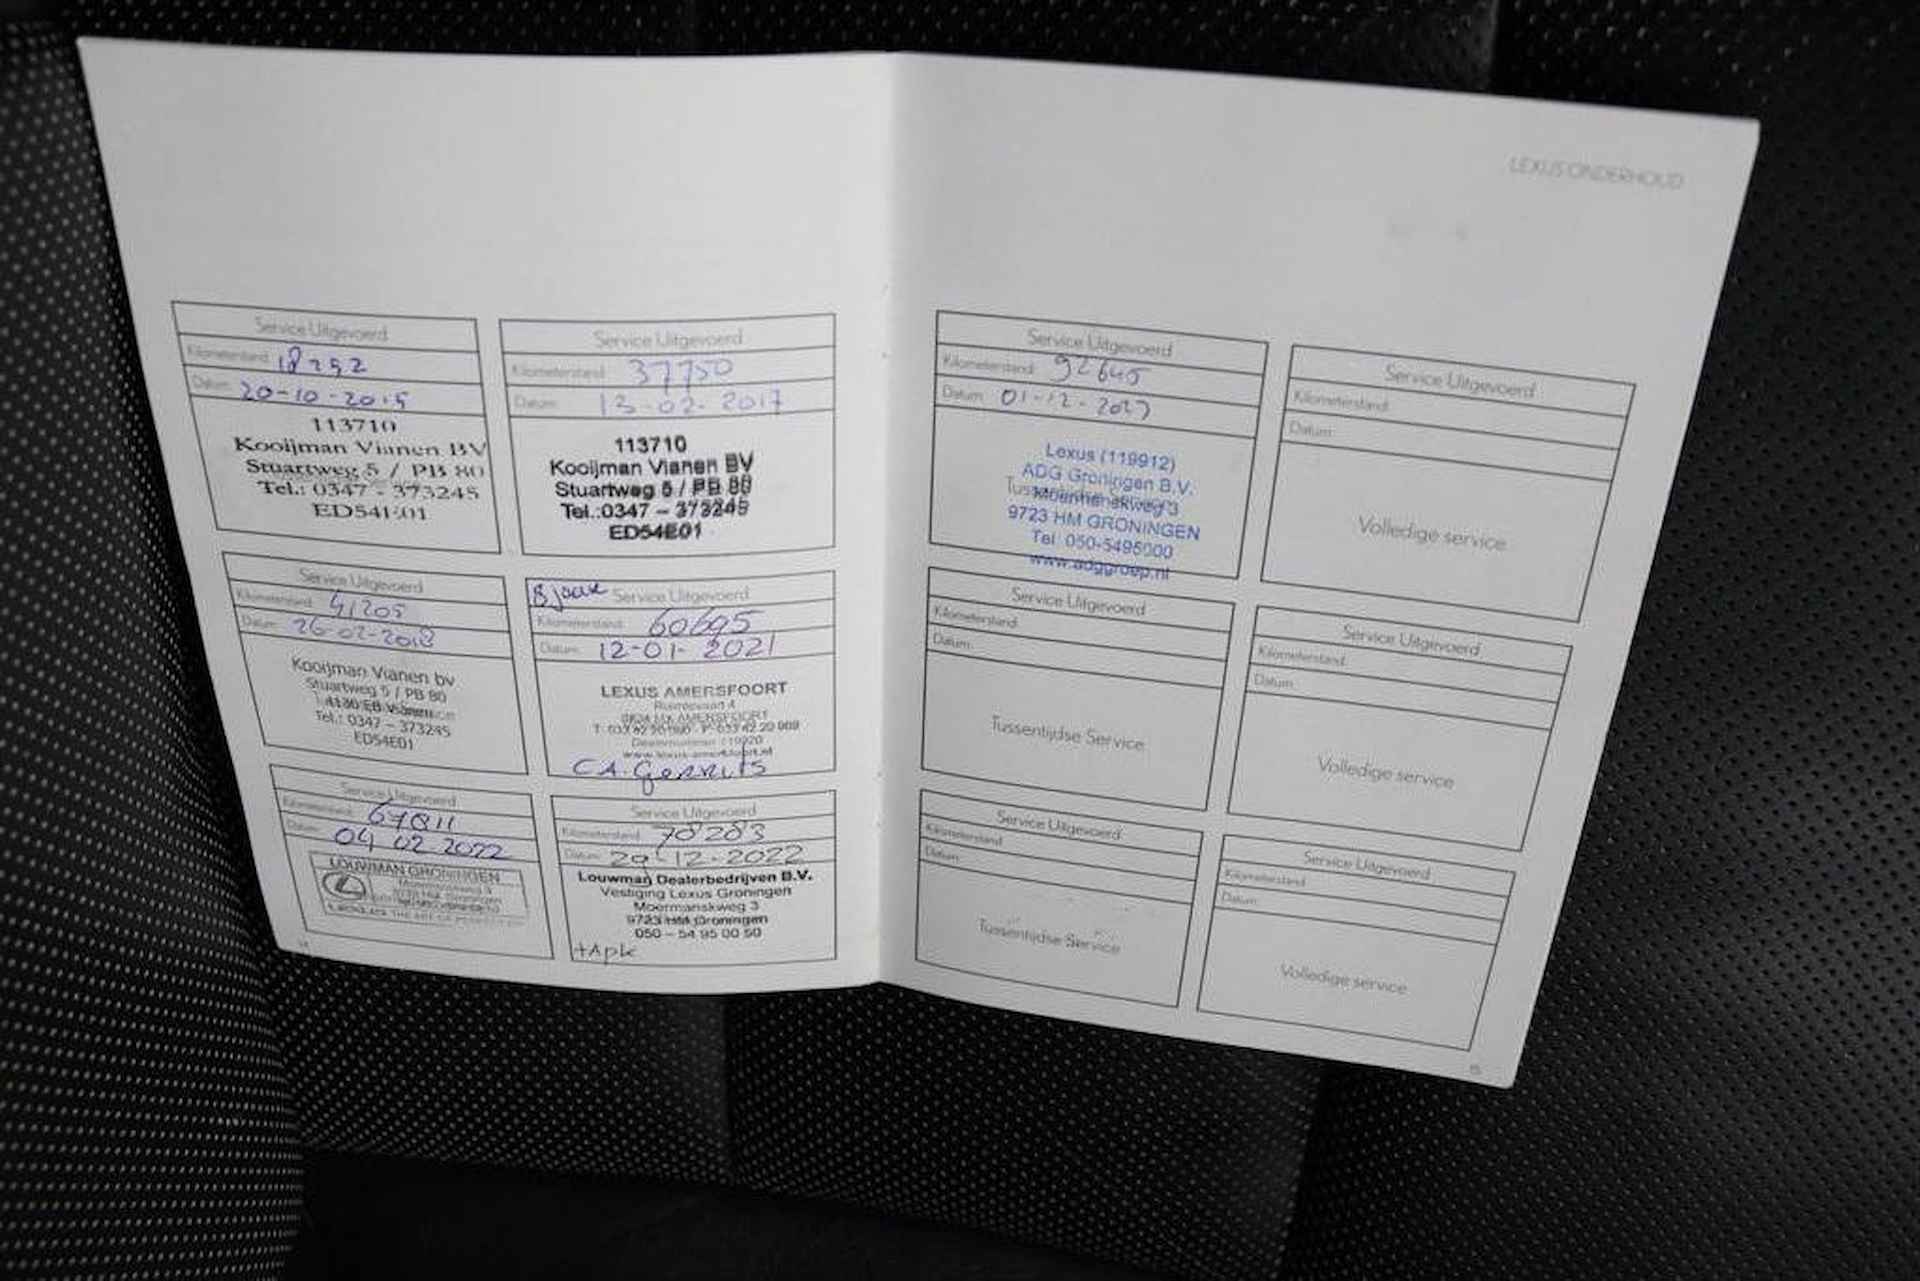 LEXUS ONDERHOUD
Service Uitgevoerd
Kilometerstand 18292
Datum 20-10-2015
113710
Kooijman Vianen BV
Stuartweg 5 / PB 80
Tel.: 0347 - 373245
ED54E01
Service Uitgevoerd
Kilometerstand 37750
Datum 13-02-2017
113710
Kooijman Vianen BV
Stuartweg 5 / PB 80
Tel.:0347 - 373245
ED54E01
Service Uitgevoerd
Kilometerstand 41205
Datum 26-02-2018
Kooijman Vianen bv
Stuartweg 5 / PB 80
4130 EB Vianen
Tel.: 0347 - 373245
ED54E01
8 jaar Service Uitgevoerd
Kilometerstand 60695
Datum 12-01-2021
LEXUS AMERSFOORT
AMERSFOORT
Dealernummer 119920
C.A. Gerrits
Service Uitgevoerd
Kilometerstand 67811
Datum 04 02 2022
LOUWMAN GRONINGEN
Moermanskweg 3
9723 HM Groningen
Service Uitgevoerd
Kilometerstand 78283
Datum 29-12-2022
Louwman Dealerbedrijven B.V.
Vestiging Lexus Groningen
Moermanskweg 3
9723 HM Groningen
050 - 54 95 00 50
+Apk
14
Service Uitgevoerd
Kilometerstand 92645
Datum 01-12-2023
Lexus (119912)
ADG Groningen B.V.
Tussentijdse Service
Moermanskweg 3
9723 HM GRONINGEN
Tel. 050-5495000
www.adggroep.nl
Service Uitgevoerd
Kilometerstand
Datum
Volledige service
Service Uitgevoerd
Kilometerstand
Datum
Tussentijdse Service
Service Uitgevoerd
Kilometerstand
Datum
Volledige service
Service Uitgevoerd
Kilometerstand
Datum
Tussentijdse Service
Service Uitgevoerd
Kilometerstand
Datum
Volledige service
15